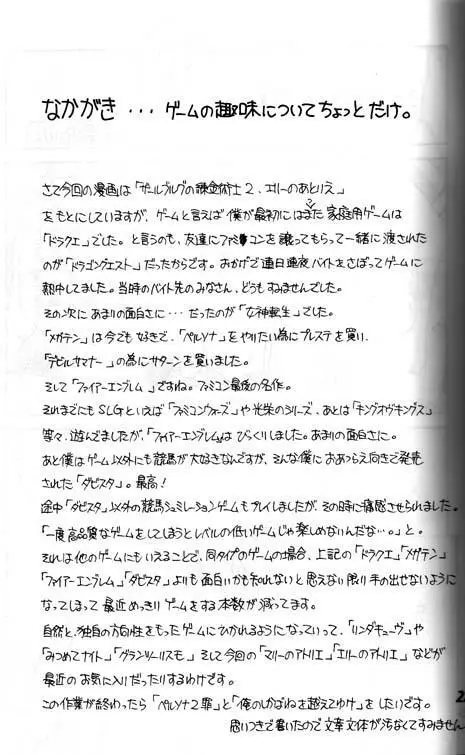 なかがき・・・ゲームの趣味についてちょっとだけ。
さて今回の漫画は「ザールブルグの錬金術士2、エリーのあとりえ」
をもとにしていますが、ゲームと言えば僕が最初にはまた家庭用ゲームは
「ドラクエ」でした。と言うのも、友達にファミコンを譲ってもらって一緒に渡された
のが「ドラゴンクエスト」だったからです。おかげで連日連夜バイトをさぼってゲームに
熱中してました。当時のバイト先のみなさん、どうもすみませんでした。
その次にあまりの面白さに・・・だったのが「女神転生」でした。
「メガテン」は今でも好きで、「ペルソナ」をやりたい為にプレステを買い、
「デビルサマナー」の為にサターンを買いました。
そして「ファイアーエンブレム」ですね。ファミコン最後の名作。
それまでにもSLGといえば「ファミコンウォーズ」や光栄のシリーズ、あとは「キングオヴキングス」
等々、遊んでましたが、「ファイアーエンブレム」はびっくりしました。あまりの面白さに。
あと僕はゲーム以外にも競馬が大好きなんですが、そんな僕におあつらえ向きで発売
された「ダビスタ」。最高！
途中「ダビスタ」以外の競馬シュミレーションゲームもプレイしましたが、その時に痛感させられました。
「一度高品質なゲームをしてしまうとレベルの低いゲームじゃ楽しめないんだな…。」と。
それは他のゲームにもいえることで、同タイプのゲームの場合、上記の「ドラクエ」「メガテン」
「ファイアーエンブレム」「ダビスタ」よりも面白いかも知れないと思えない限り手の出せないように
なってしまって最近めっきりゲームをする本数が減ってます。
自然と、独自の方向性をもったゲームにひかれるようになっていって、「リンダキューヴ」や
「みつめてナイト」「グランツーリスモ」そして今回の「マリーのアトリエ」「エリーのアトリエ」などが
最近のお気に入りだったりするわけです。
この作業が終わったら「ペルソナ2罪」と「俺のしかばねを越えてゆけ」をしたいです。
思いつきで書いたので文章文体が汚なくてすみません
2